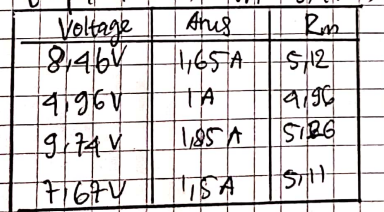 Voltage Arus Rm
8,46V 1,65 A 5,12
4,96V 1 A 4,96
9,74 V 1,85 A 5,26
7,67V 1,5 A 5,11